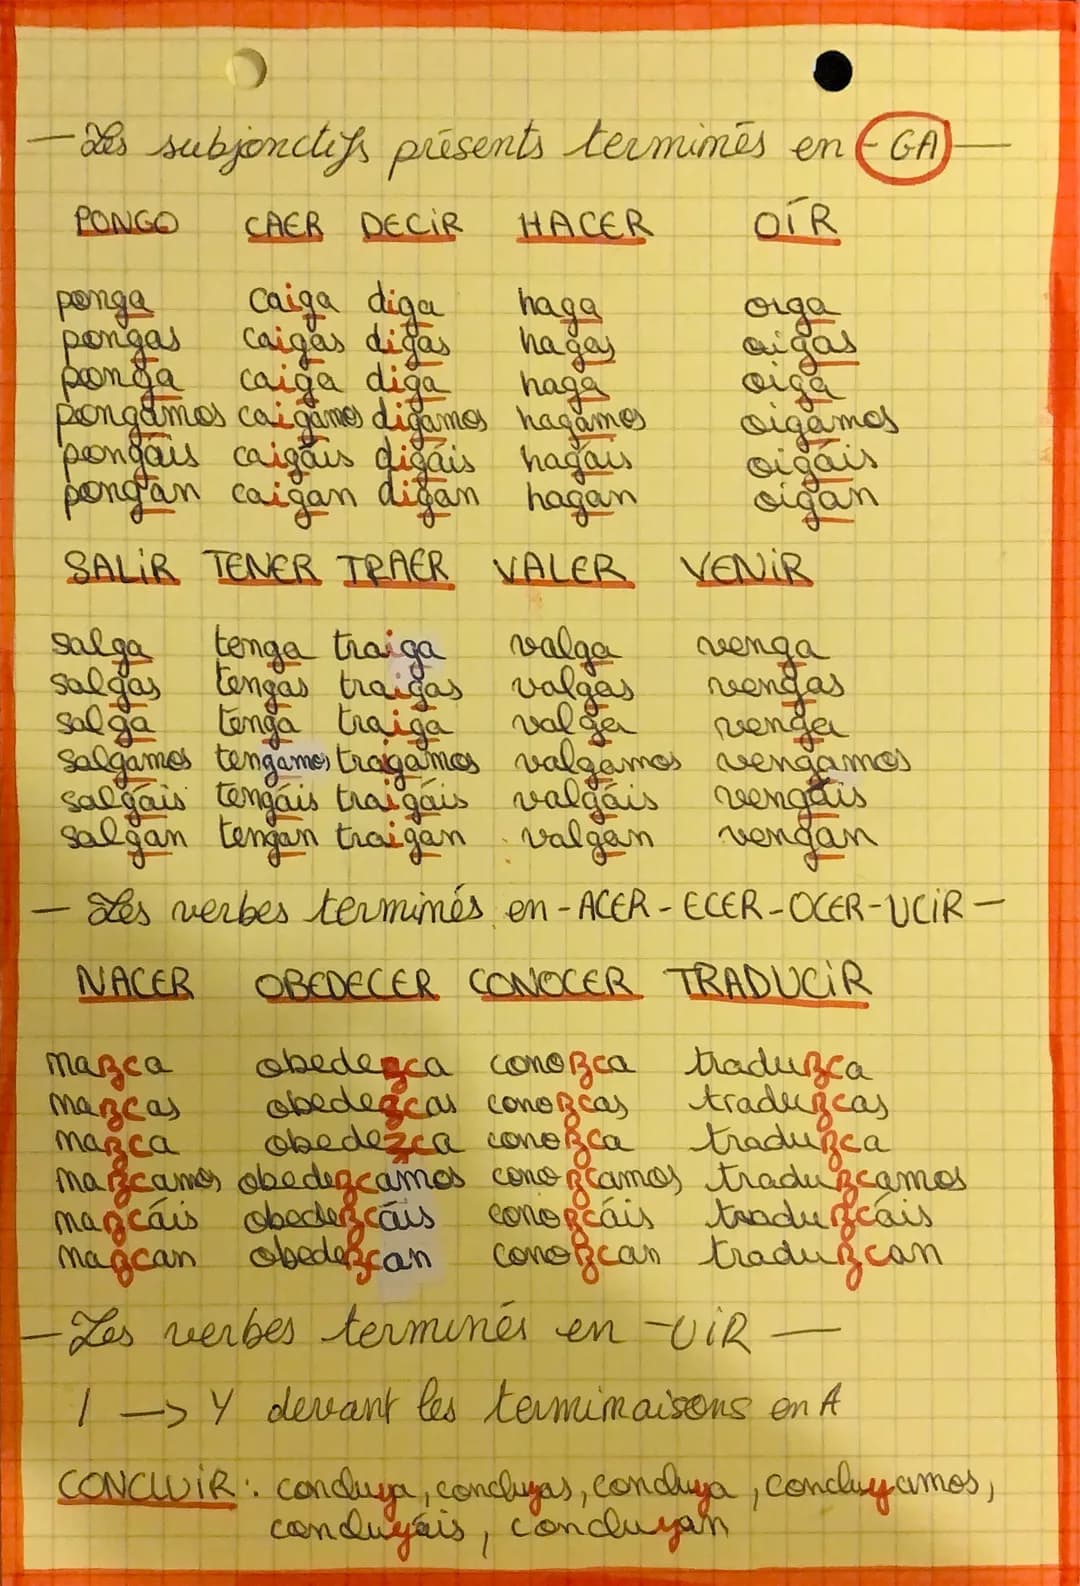 — Les subjonctifs présents terminés en -GA —
PONGO CAER DECIR HACER OÍR
ponga caiga diga haga oiga
pongas caigas digas hagas oigas
ponga caiga diga haga oiga
pongamos caigamos digamos hagamos oigamos
pongáis caigáis digáis hagáis oigáis
pongan caigan digan hagan oigan
SALIR TENER TRAER VALER VENIR
salga tenga traiga valga venga
salgas tengas traigas valgas vengas
salga tenga traiga valga venga
salgamos tengamos traigamos valgamos vengamos
salgáis tengáis traigáis valgáis vengáis
salgan tengan traigan valgan vengan
— Les verbes terminés en -ACER -ECER -OCER -UCIR —
NACER OBEDECER CONOCER TRADUCIR
nazca obedezca conozca traduzca
nazcas obedezcas conozcas traduzcas
nazca obedezca conozca traduzca
nazcamos obedezcamos conozcamos traduzcamos
nazcáis obedezcáis conozcáis traduzcáis
nazcan obedezcan conozcan traduzcan
— Les verbes terminés en -UIR —
I -> Y devant les terminaisons en A
CONCLUIR : concluya, concluyas, concluya, concluyamos,
concluyáis, concluyan